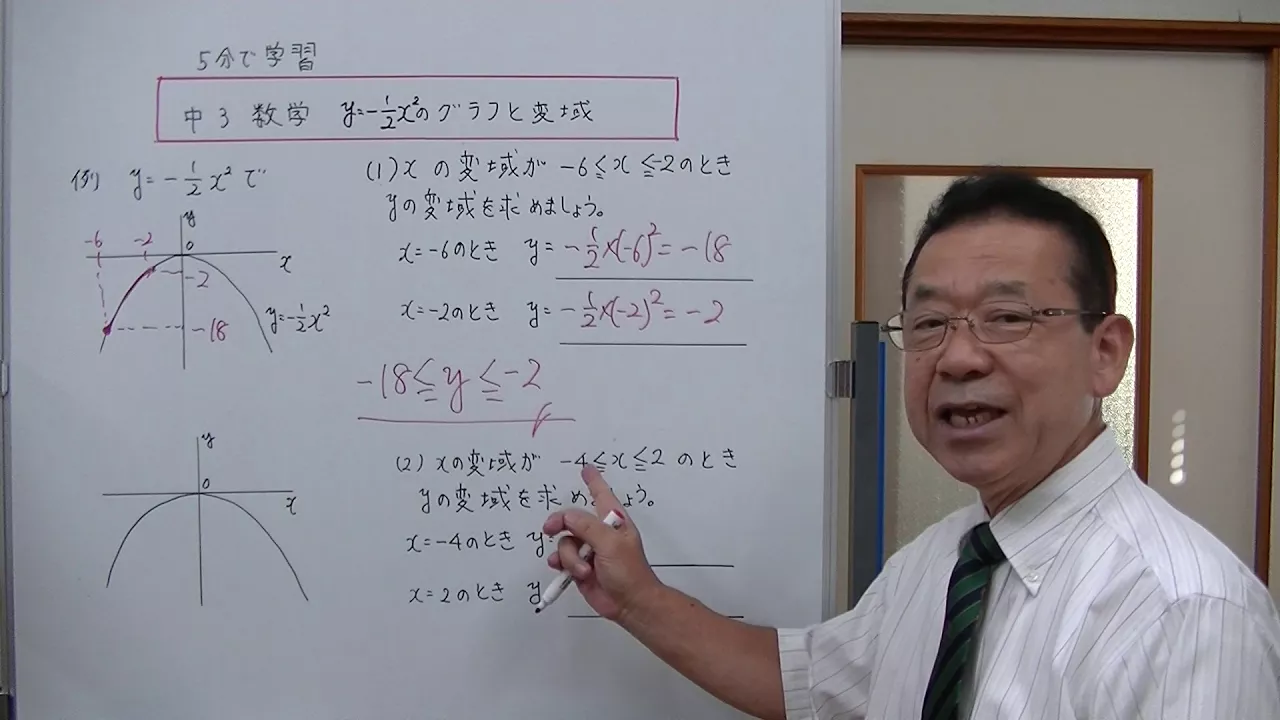 5分で学習
中3 数学 y=-1/2x²のグラフと変域
例 y=-1/2x²で
(1) xの変域が -6≦x≦-2のとき
yの変域を求めましょう。
x=-6のとき y=-1/2×(-6)²=-18
x=-2のとき y=-1/2×(-2)²=-2
-18≦y≦-2
y
-6 -2 0
x
-2
-18
y=-1/2x²
(2) xの変域が -4≦x≦2 のとき
yの変域を求めましょう。
x=-4のとき y
x=2のとき y
y
0
x